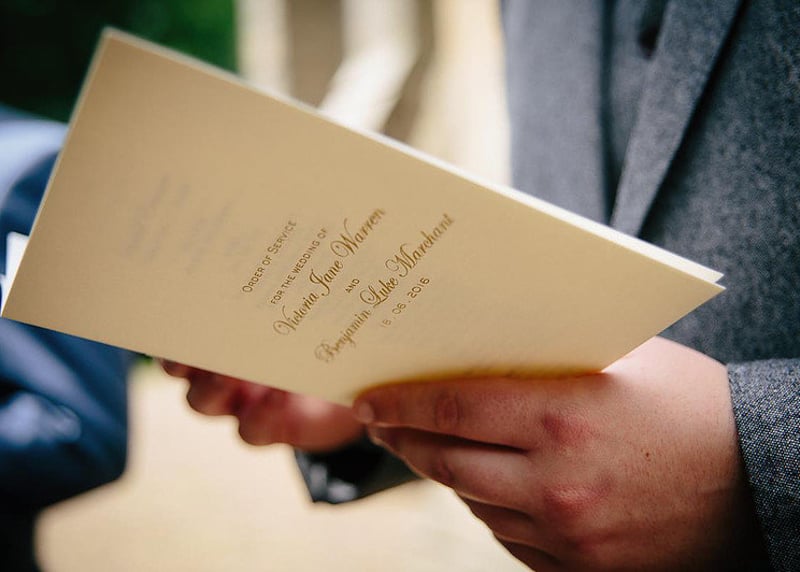 ORDER OF SERVICE
FOR THE WEDDING OF
Victoria Jane Warren
AND
Benjamin Luke Marchant
18.06.2016